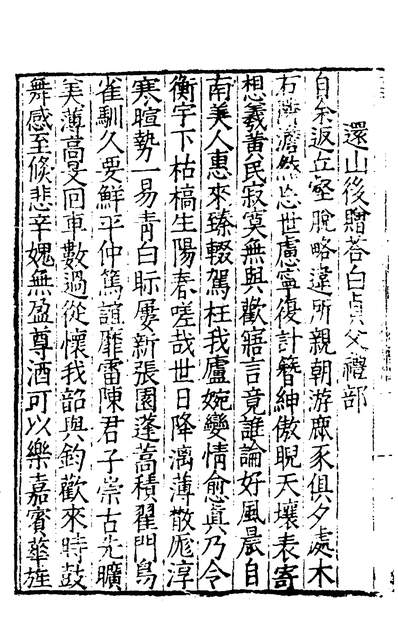 還山後贈荅白貞父禮部
自余返丘壑脫略違所親朝游麋豕俱夕處木
石隣澹然忘世慮寧復計簪紳傲睨天壤表寄
想羲黄民寂寞無與歡寤言竟誰論好風晨自
南美人惠來臻輟駕枉我廬婉孌情愈真乃令
衡宇下枯槁生陽春嗟哉世日降漓薄散厖淳
寒暄勢一易青白眎屢新張園蓬蒿積翟門鳥
雀馴久要鮮平仲篤誼靡雷陳君子崇古先曠
矣薄高旻回車數過從懷我韶與鈞歡來時鼓
舞感至倐悲辛媿無盈尊酒可以樂嘉賓華旌